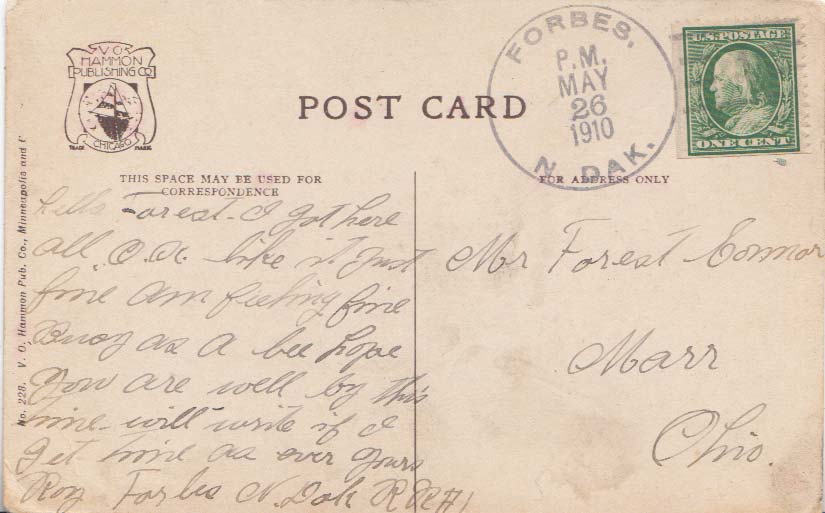 V.O.
HAMMON
PUBLISHING CO
TRADE MARK
CHICAGO
POST CARD
FORBES,
P.M.
MAY
26
1910
N. DAK.
U.S. POSTAGE
ONE CENT
THIS SPACE MAY BE USED FOR
CORRESPONDENCE
FOR ADDRESS ONLY
No. 228. V. O. Hammon Pub. Co., Minneapolis and
Hello Forest - I got here
all O.K. like it Just
fine am feeling fine
Busy as a bee hope
You are well by this
time - will write if I
get time as ever yours
Roy Forbes N. Dak R R #1
Mr Forest Connor
Marr
Ohio.